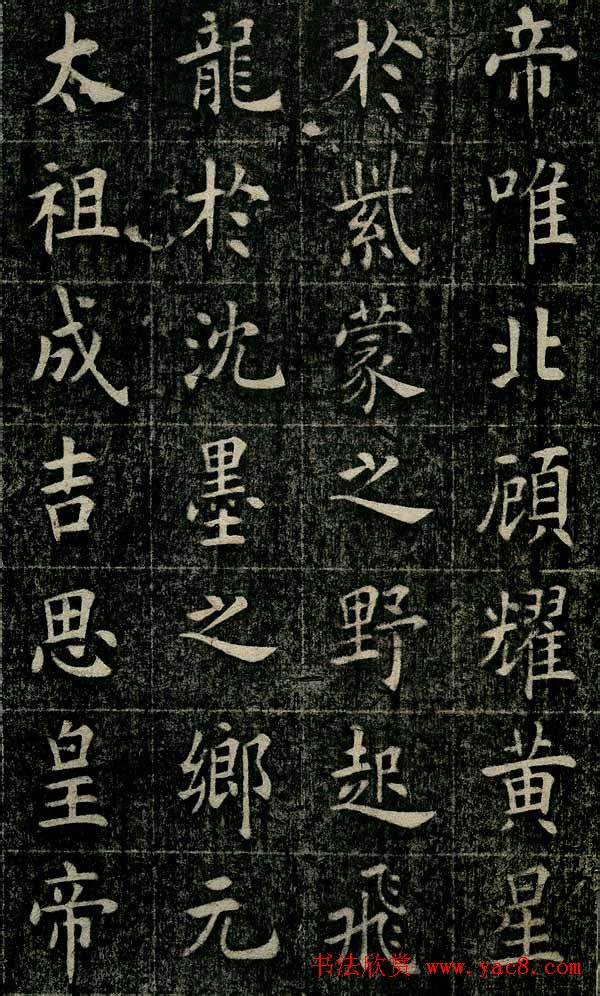 帝唯北顧耀黄星
於紫蒙之野起飛
龍於沈墨之鄉元
太祖成吉思皇帝
书法欣赏 www.yac8.com